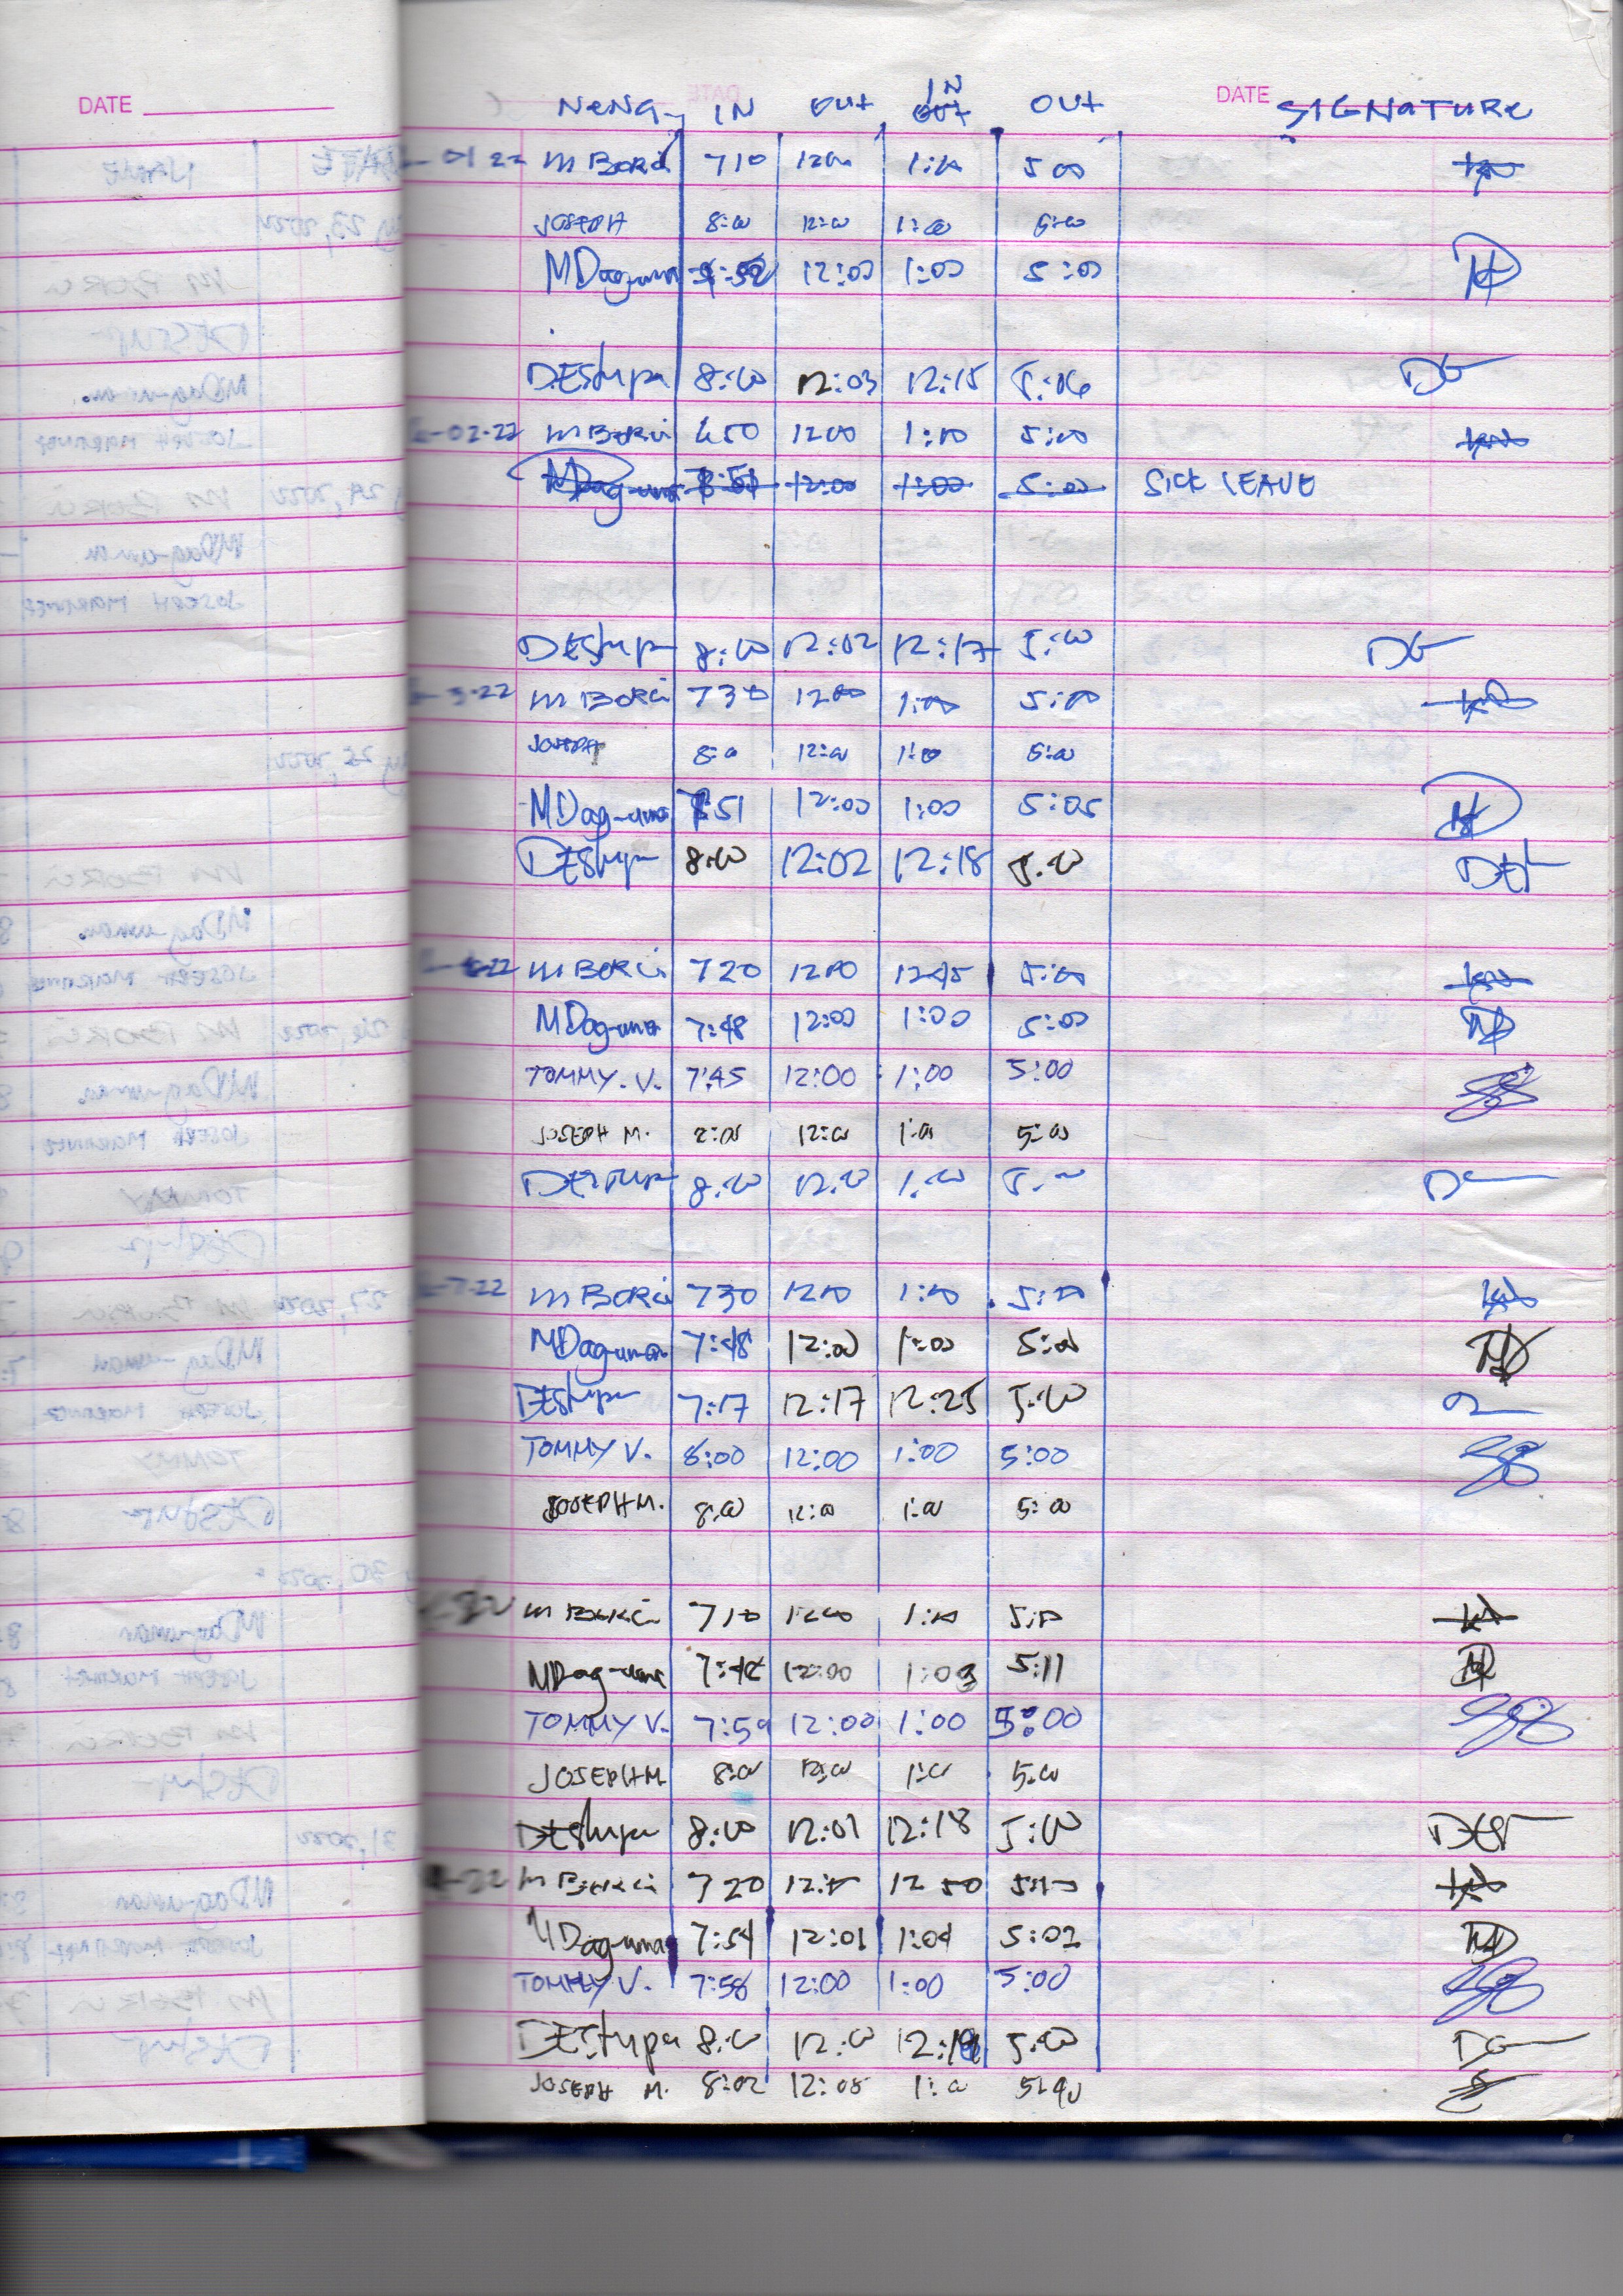 DATE
NAME IN OUT IN OUT DATE SIGNATURE
01 22 M BORCI 710 1200 1:00 5 00
JOSEPH 8:00 12:00 1:00 5:00
MDaguman 12:00 1:00 5:00
DEStupa 8:00 12:03 12:15 5:06
02-22 M BORCI 650 1200 1:00 5:00
MDaguman 12:00 1:00 5:00 SICK LEAVE
DEStupa 8:00 12:02 12:17 5:00
3-22 M BORCI 730 1200 1:00 5:00
JOSEPH 8:00 12:00 1:00 5:00
MDaguman 7:51 12:00 1:00 5:05
DEStupa 8:00 12:02 12:18 5:00
22 M BORCI 720 1200 1245 5:00
MDaguman 7:48 12:00 1:00 5:00
TOMMY. V. 7:45 12:00 1:00 5:00
JOSEPH M. 8:00 12:00 1:00 5:00
DEStupa 8:00 12:00 1:00 5:00
7-22 M BORCI 730 1200 1:00 5:00
MDaguman 7:48 12:00 1:00 5:00
DEStupa 7:17 12:17 12:25 5:00
TOMMY V. 8:00 12:00 1:00 5:00
JOSEPH M. 8:00 12:00 1:00 5:00
M BORCI 710 1200 1:00 5:00
MDaguman 12:00 1:03 5:11
TOMMY V. 7:59 12:00 1:00 5:00
JOSEPH M 8:00 12:00 1:00 5:00
DEStupa 8:00 12:01 12:18 5:00
22 M BORCI 720 12:00 12 50 5:00
MDaguman 7:54 12:01 1:04 5:02
TOMMY V. 7:58 12:00 1:00 5:00
DEStupa 8:00 12:00 5:00
JOSEPH M. 8:02 12:05 1:00